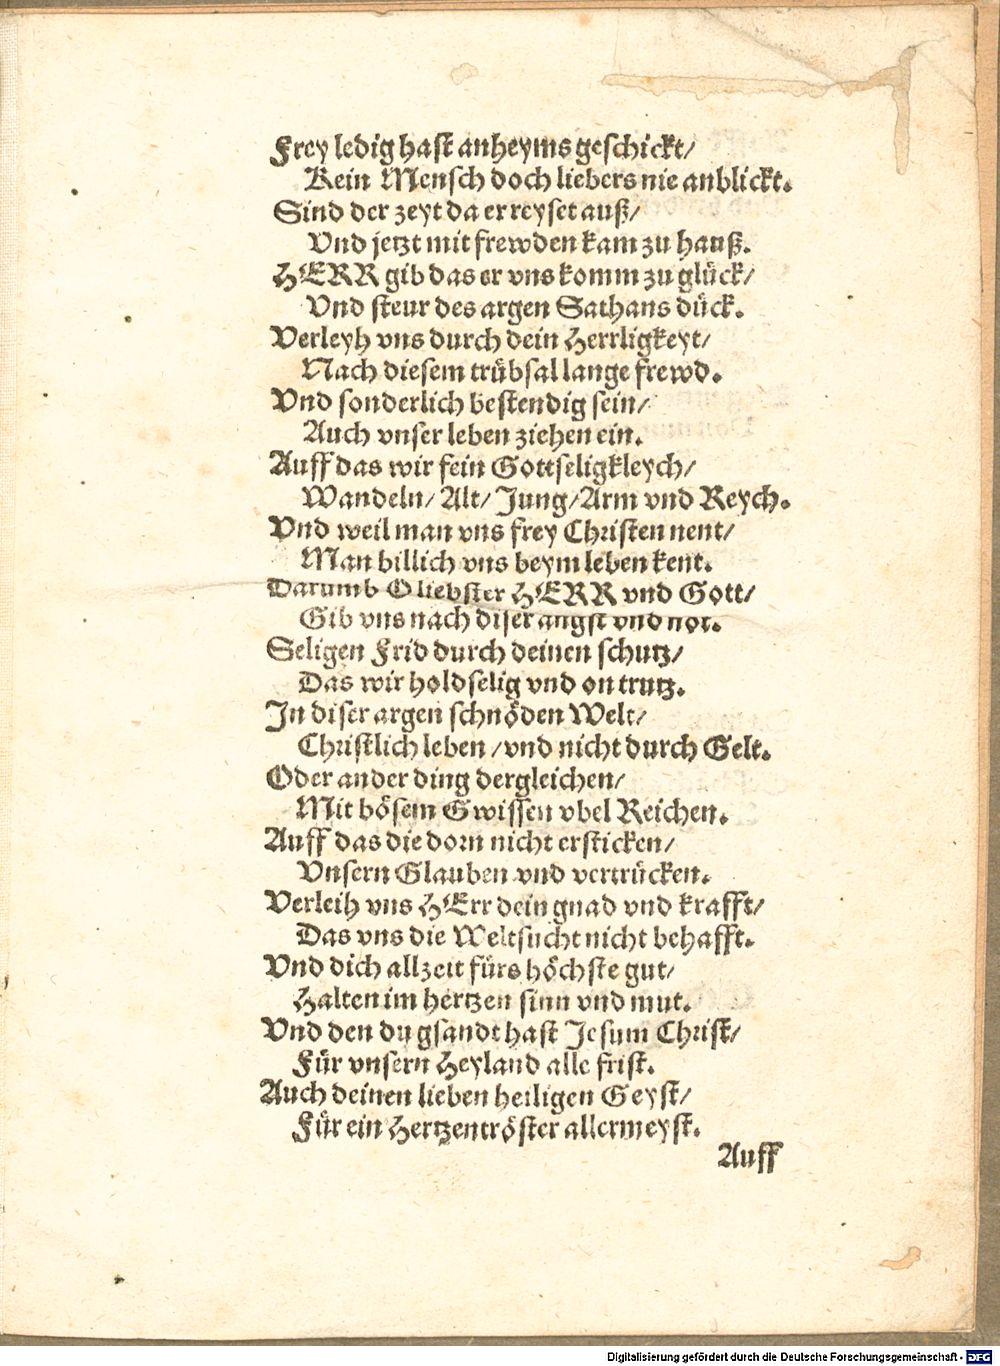 Frey ledig hast anheyms geschickt/
Kein Mensch doch liebers nie anblickt.
Sind der zeyt da er reyset auß/
Vnd jetzt mit frewden kam zu hauß.
HERR gib das er vns komm zu glück/
Vnd steur des argen Sathans dück.
Verleyh vns durch dein Herrligkeyt/
Nach diesem trübsal lange frewd.
Vnd sonderlich bestendig sein/
Auch vnser leben ziehen ein.
Auff das wir fein Gottseligkleych/
Wandeln/ Alt/ Jung/ Arm vnd Reych.
Vnd weil man vns frey Christen nent/
Man billich vns beym leben kent.
Darumb O liebster HERR vnd Gott/
Gib vns nach diser angst vnd not.
Seligen Frid durch deinen schutz/
Das wir holdselig vnd on trutz.
In diser argen schnöden Welt/
Christlich leben/ vnd nicht durch Gelt.
Oder ander ding dergleichen/
Mit bösem Gwissen vbel Reichen.
Auff das die dorn nicht ersticken/
Vnsern Glauben vnd vertrücken.
Verleih vns HErr dein gnad vnd krafft/
Das vns die Weltsucht nicht behafft.
Vnd dich allzeit fürs höchste gut/
Halten im hertzen sinn vnd mut.
Vnd den du gsandt hast Jesum Christ/
Für vnsern Heyland alle frist.
Auch deinen lieben heiligen Geyst/
Für ein Hertzentröster allermeyst.
Auff
Digitalisierung gefördert durch die Deutsche Forschungsgemeinschaft - DFG